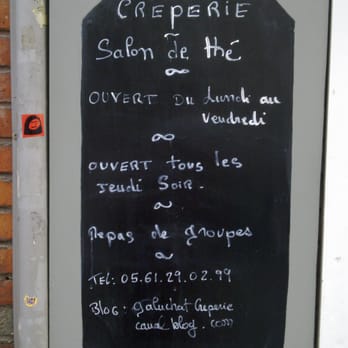 CREPERIE
Salon de thé
OUVERT DU Lundi au
Vendredi
OUVERT tous les
Jeudi Soir.
Repas de groupes
TEL: 05.61.29.02.99
BLOG: galuchat Creperie
canal blog.com